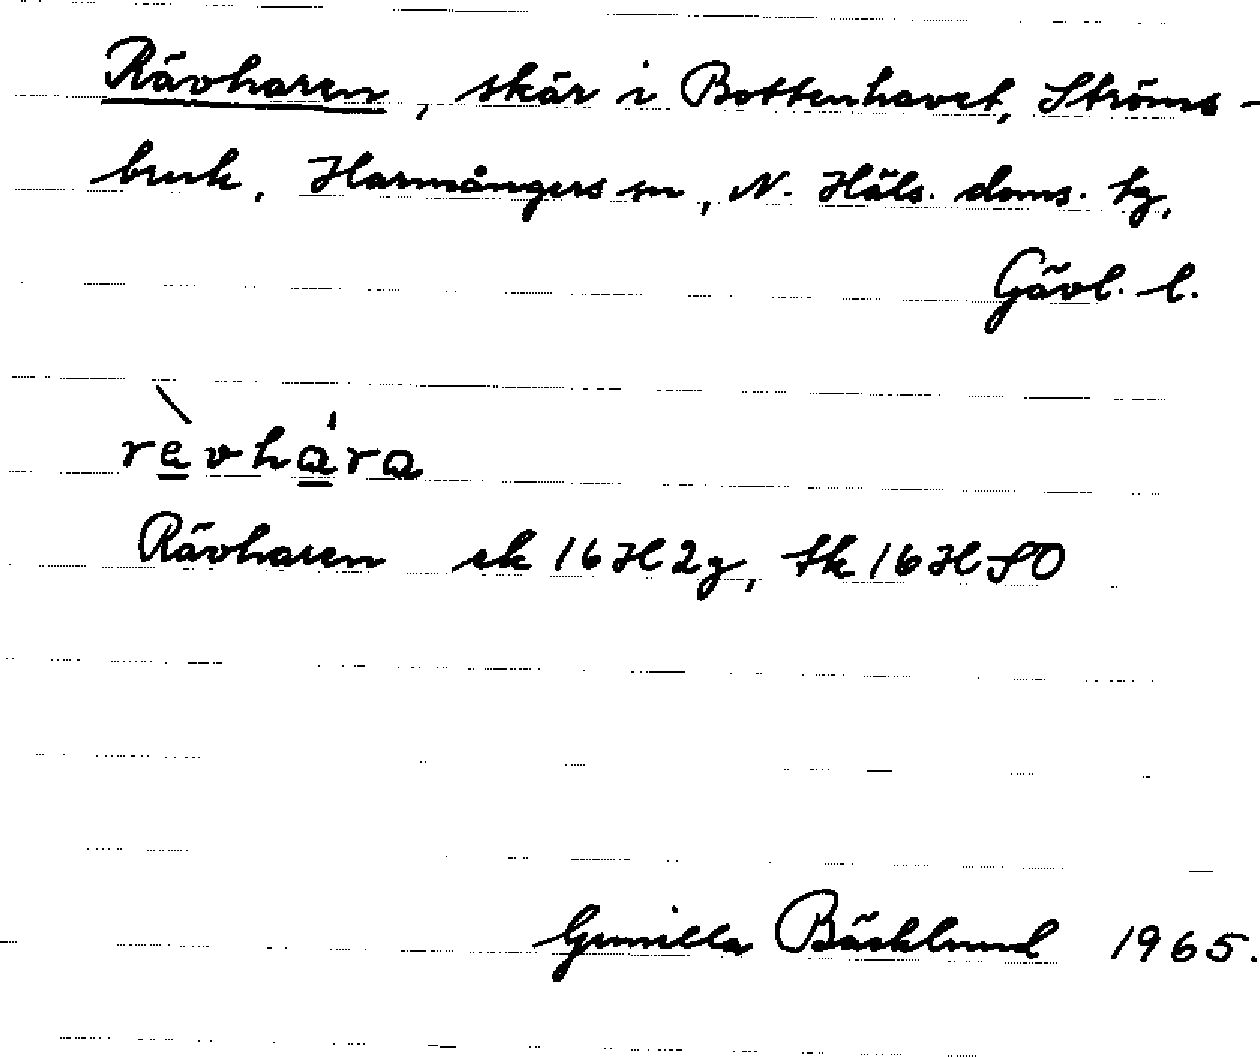 Rävharen, skär i Bottenhavet, Ströms-
bruk, Harmångers sn, N. Häls. doms. tg,
Gävl. l.
rèvhára
Rävharen ek 16H2g, Tk 16HSO
Gunilla Bäcklund 1965.